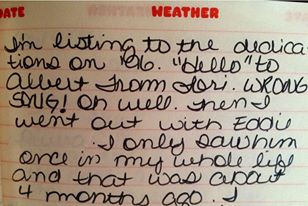 DATE WEATHER
I'm listing to the dedica
tions on '96. "Hello" to
Albert from Lori. WRONG
SNG! Oh well. Then I
went out with Eddie
. I only saw him
once in my whole life
and that was about
4 months ago. I